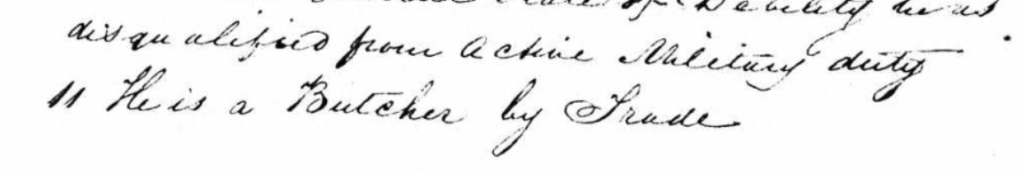 State of Debility he is
disqualified from Active Military duty
11 He is a Butcher by Trade